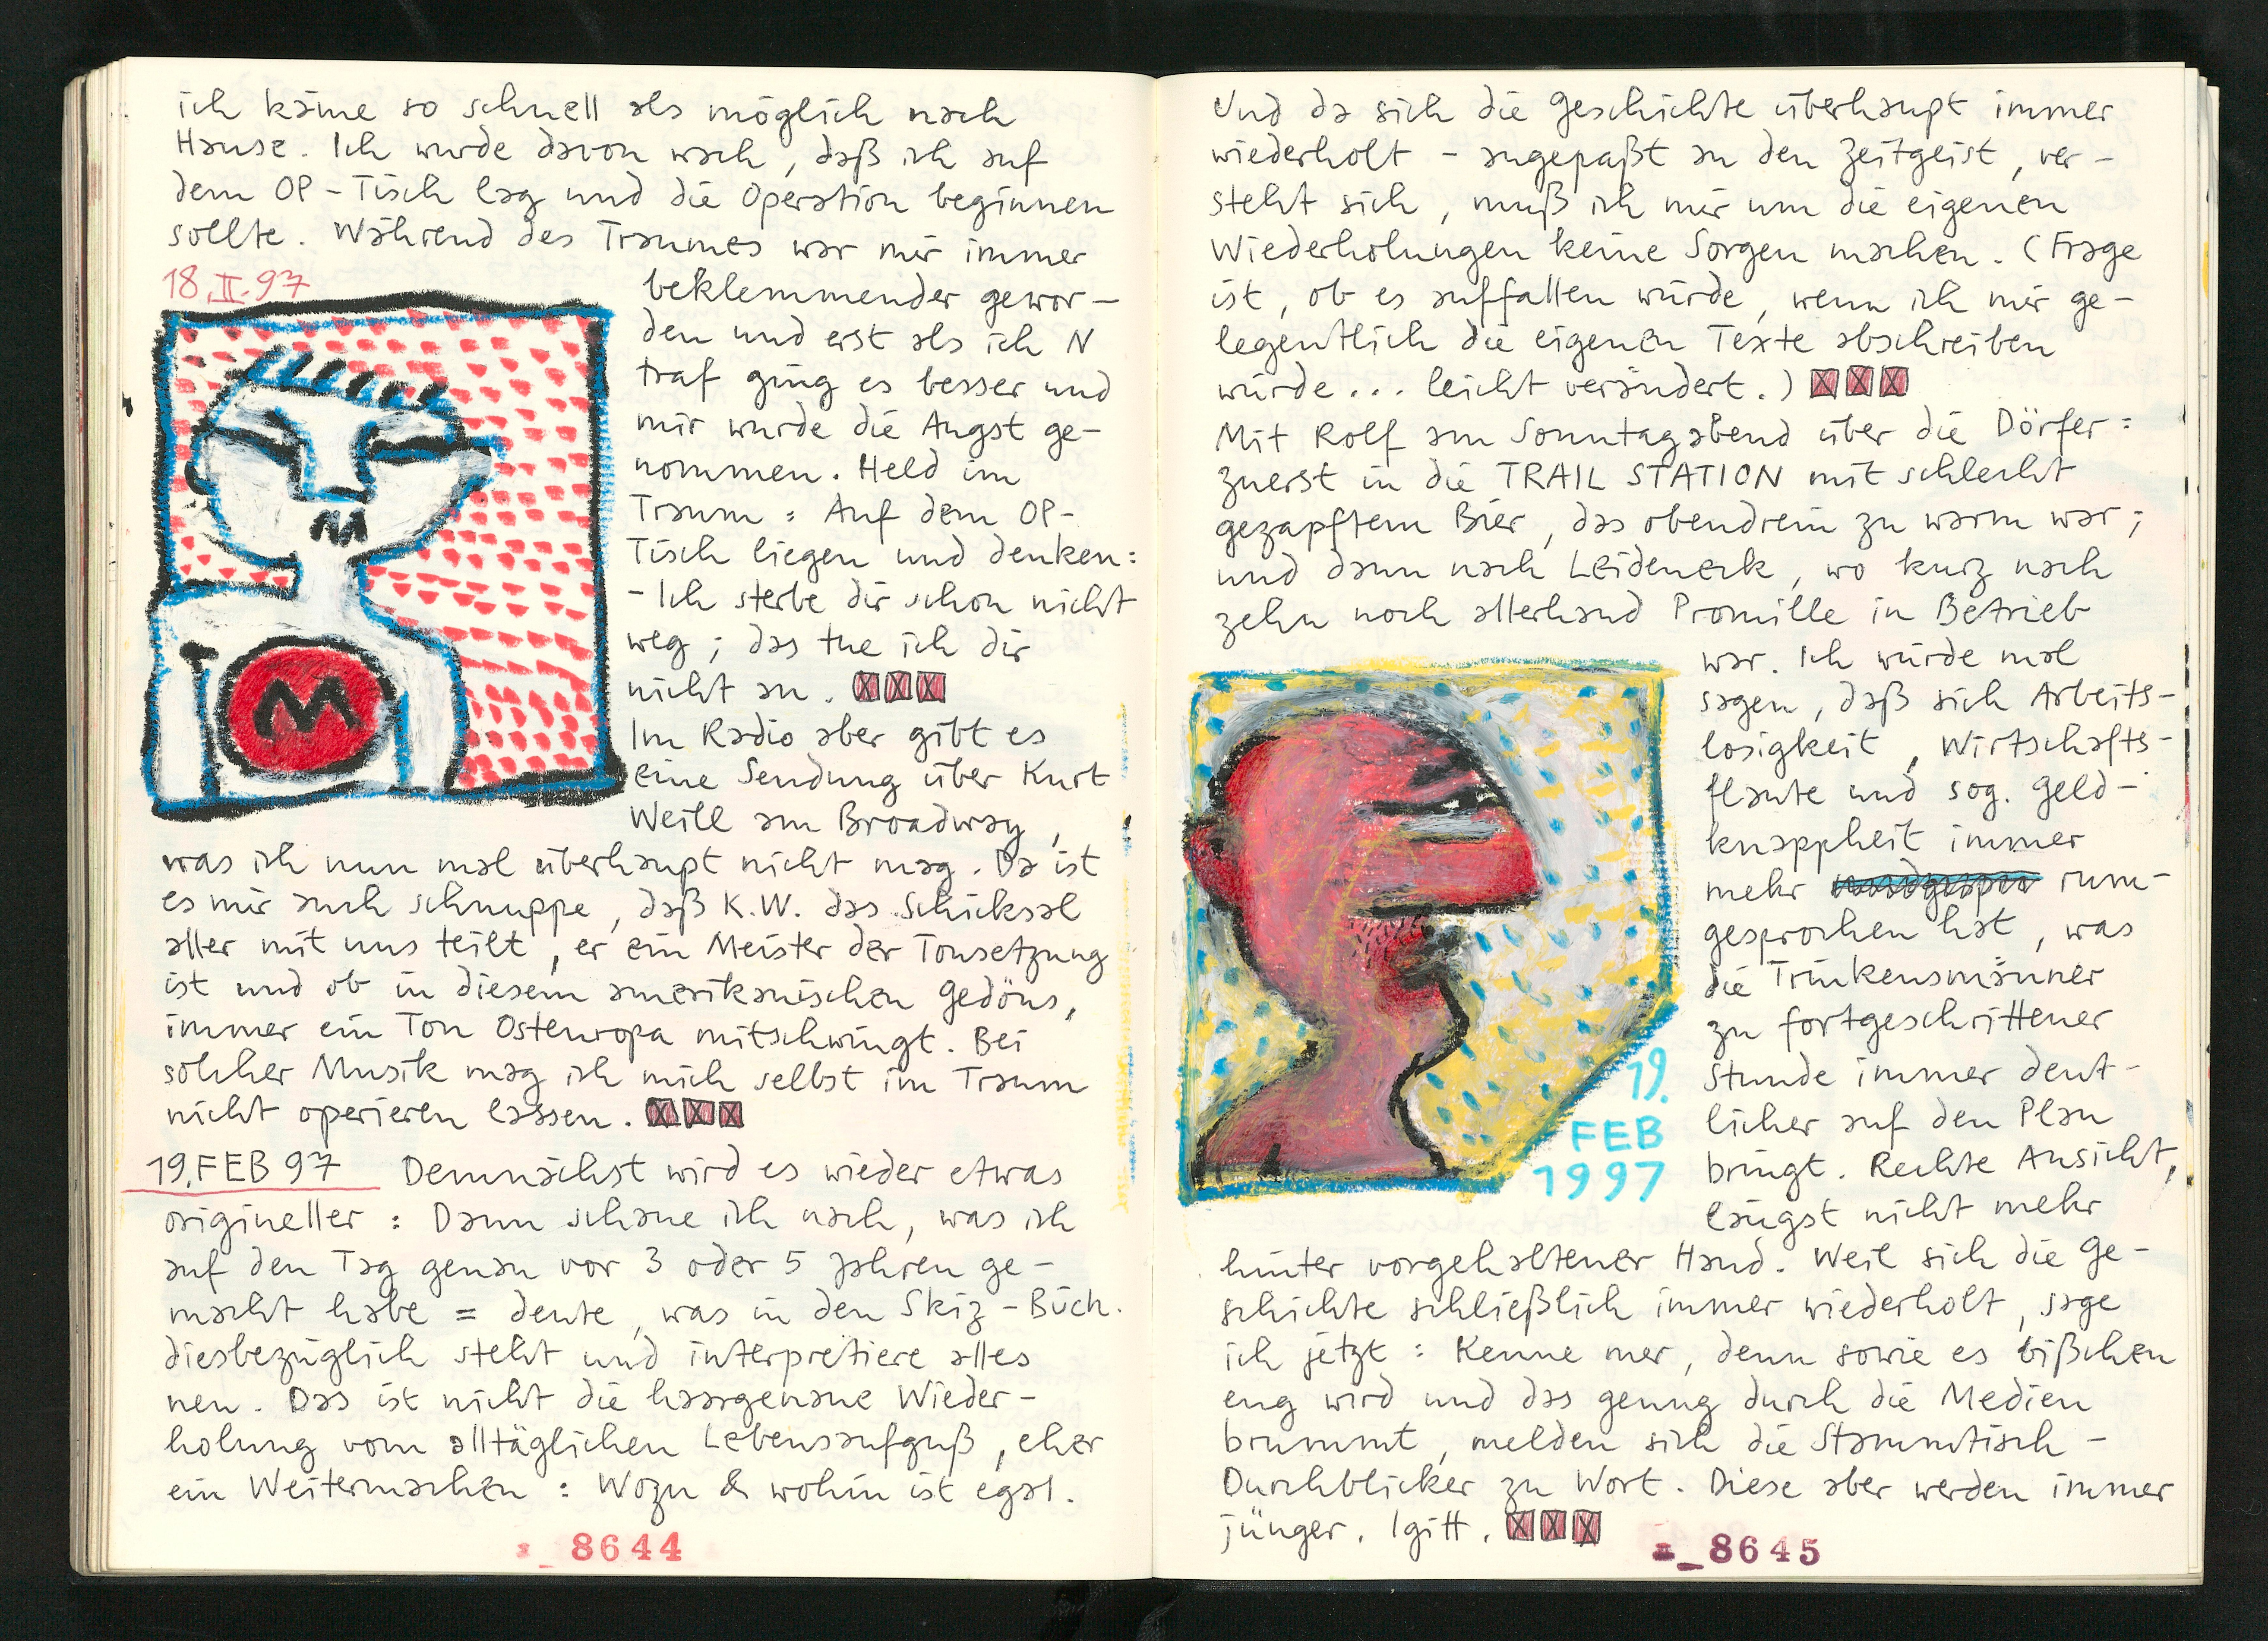 ich käme so schnell als möglich nach
Hause. Ich wurde davon wach, daß ich auf
dem OP-Tisch lag und die Operation beginnen
sollte. Während des Traumes war mir immer
18.II.97
beklemmender gewor-
den und erst als ich N
traf ging es besser und
mir wurde die Angst ge-
nommen. Held im
Traum: Auf dem OP-
Tisch liegen und denken:
- Ich sterbe dir schon nicht
weg; das tue ich dir
nicht an.
Im Radio aber gibt es
eine Sendung über Kurt
Weill am Broadway,
was ich nun mal überhaupt nicht mag. Da ist
es mir auch schnuppe, daß K.W. das Schicksal
aller mit uns teilt, er ein Meister der Tonsetzung
ist und ob in diesem amerikanischen Gedöns,
immer ein Ton Osteuropa mitschwingt. Bei
solcher Musik mag ich mich selbst im Traum
nicht operieren lassen.
19.FEB 97 Demnächst wird es wieder etwas
origineller: Dann schaue ich nach, was ich
auf den Tag genau vor 3 oder 5 Jahren ge-
macht habe = deute, was in den Skiz-Büch.
diesbezüglich steht und interpretiere alles
neu. Das ist nicht die haargenaue Wieder-
holung vom alltäglichen Lebensaufguß, eher
ein Weitermachen: Wozu & wohin ist egal.
8644
Und da sich die Geschichte überhaupt immer
wiederholt - angepaßt an den Zeitgeist, ver-
steht sich, muß ich mir um die eigenen
Wiederholungen keine Sorgen machen. (Frage
ist, ob es auffallen würde, wenn ich mir ge-
legentlich die eigenen Texte abschreiben
würde... leicht verändert.)
Mit Rolf am Sonntagabend über die Dörfer:
zuerst in die TRAIL STATION mit schlecht
gezapftem Bier, das obendrein zu warm war;
und dann nach Leideneck, wo kurz nach
zehn noch allerhand Promille in Betrieb
war. Ich würde mal
sagen, daß sich Arbeits-
losigkeit, Wirtschafts-
flaute und sog. Geld-
knappheit immer
mehr rum-
gesprochen hat, was
die Trinkensmänner
zu fortgeschrittener
Stunde immer deut-
licher auf den Plan
bringt. Rechte Ansicht,
längst nicht mehr
19.
FEB
1997
hinter vorgehaltener Hand. Weil sich die Ge-
schichte schließlich immer wiederholt, sage
ich jetzt: Kenne mer, denn sowie es bißchen
eng wird und das genug durch die Medien
brummt, melden sich die Stammtisch-
Durchblicker zu Wort. Diese aber werden immer
jünger. Igitt.
8645